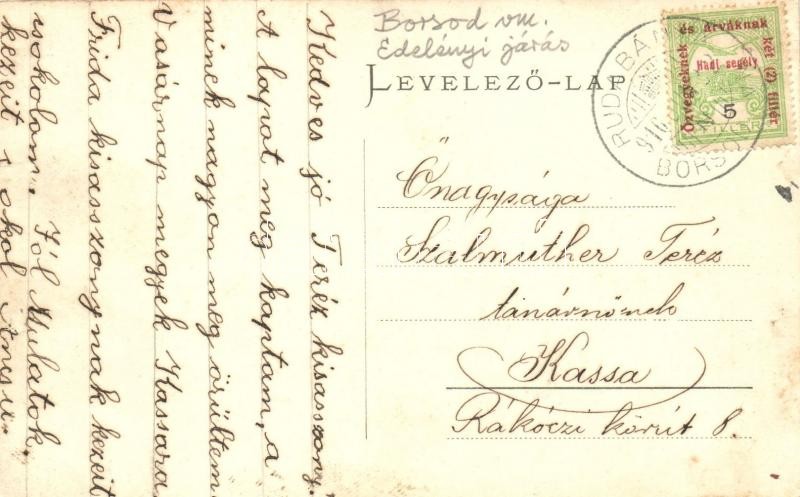 Borsod vm.
Edelényi járás
LEVELEZŐ-LAP
RUDABÁN
916
BORSO
Özvegyeknek és árváknak két (2) fillér
Hadi segély
5
FILLÉR
Őnagysága
Szalmuther Teréz
tanárnőnek
Kassa
Rákóczi körút 8.
Kedves jó Teréz kisasszony.
A lapot meg kaptam, a
minek nagyon meg örültem
Vasárnap megyek Kassara
Frida kisasszonynak kezeit
csokolom. Jól Mulatok.
kezeit csokol